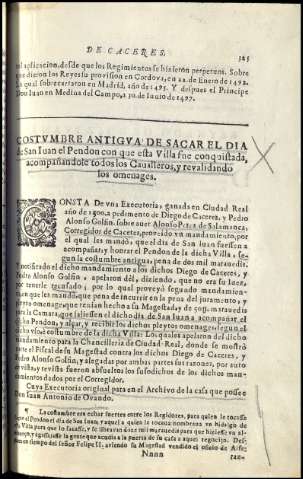 DE CACERES. 325
tal aplicacion, desde que los Regimientos se hizieron perpetuos. Sobre
que dieron los Reyes su provission en Cordova, en 22. de Enero de 1492.
La qual sobrecartaron en Madrid, año de 1495. Y despues el Principe
Don Iuan en Medina del Campo, a 30. de Iunio de 1497.
COSTVMBRE ANTIGVA DE SACAR EL DIA
de San Iuan el Pendon con que esta Villa fue conquistada,
acompañandole todos los Cavalleros, y revalidando
los omenages.
CONSTA De vna Executoria, ganada en Ciudad Real
año de 1500. a pedimento de Diego de Caceres, y Pedro
Alonso Golfin. sobre que Alonso Perez de Salamanca,
Corregidor de Caceres, proveido vn mandamiento, por
el qual les mandò, que el dia de San Iuan fuessen a
acompañar, y honrar el Pendon de la dicha Villa, se-
gun la costumbre antigua, pena de dos mil maravedis.
Y notificado el dicho mandamiento a los dichos Diego de Caceres, y
Pedro Alonso Golfin, apelaron dèl, diziendo, que no era su Iuez,
por tenerle recusado; por lo qual proveyò segundo mandamien-
to, en que les mandò, que pena de incurrir en la pena del juramento, y
pleyto omenage, que tenian hecho a su Magestad, y de maravedis
para la Camara, que saliessen el dicho dia de San Iuan a acompañar el
dicho Pendon, y alçar, y recibir los dichos pleytos omenages, segun el
dicho vso, y costumbre de la dicha Villa. Los quales apelaron del dicho
mandamiento para la Chancilleria de Ciudad Real, donde se mostrò
parte el Fiscal de su Magestad contra los dichos Diego de Caceres, y
Pedro Alonso Golfin, y alegaron por ambas partes sus razones, por auto
de vista, y revista fueron absueltos los susodichos de los dichos man-
damientos dados por el Corregidor.
Cuya Executoria original para en el Archivo de la casa que posee
Don Iuan Antonio de Ovando.
¶ La costumbre era echar suertes entre los Regidores, para quien le tocasse
el Pendon el dia de San Iuan, y aquel a quien le tocava nombrava vn hidalgo de
la Villa para que lo sacasse, y se libravan doze mil maravedis
la gente que acudia a la puerta de su casa a aquel regocijo. Des-
en tiempo del señor Felipe II. aviendo su Magestad vendido el oficio de Alfe-
Nnnn